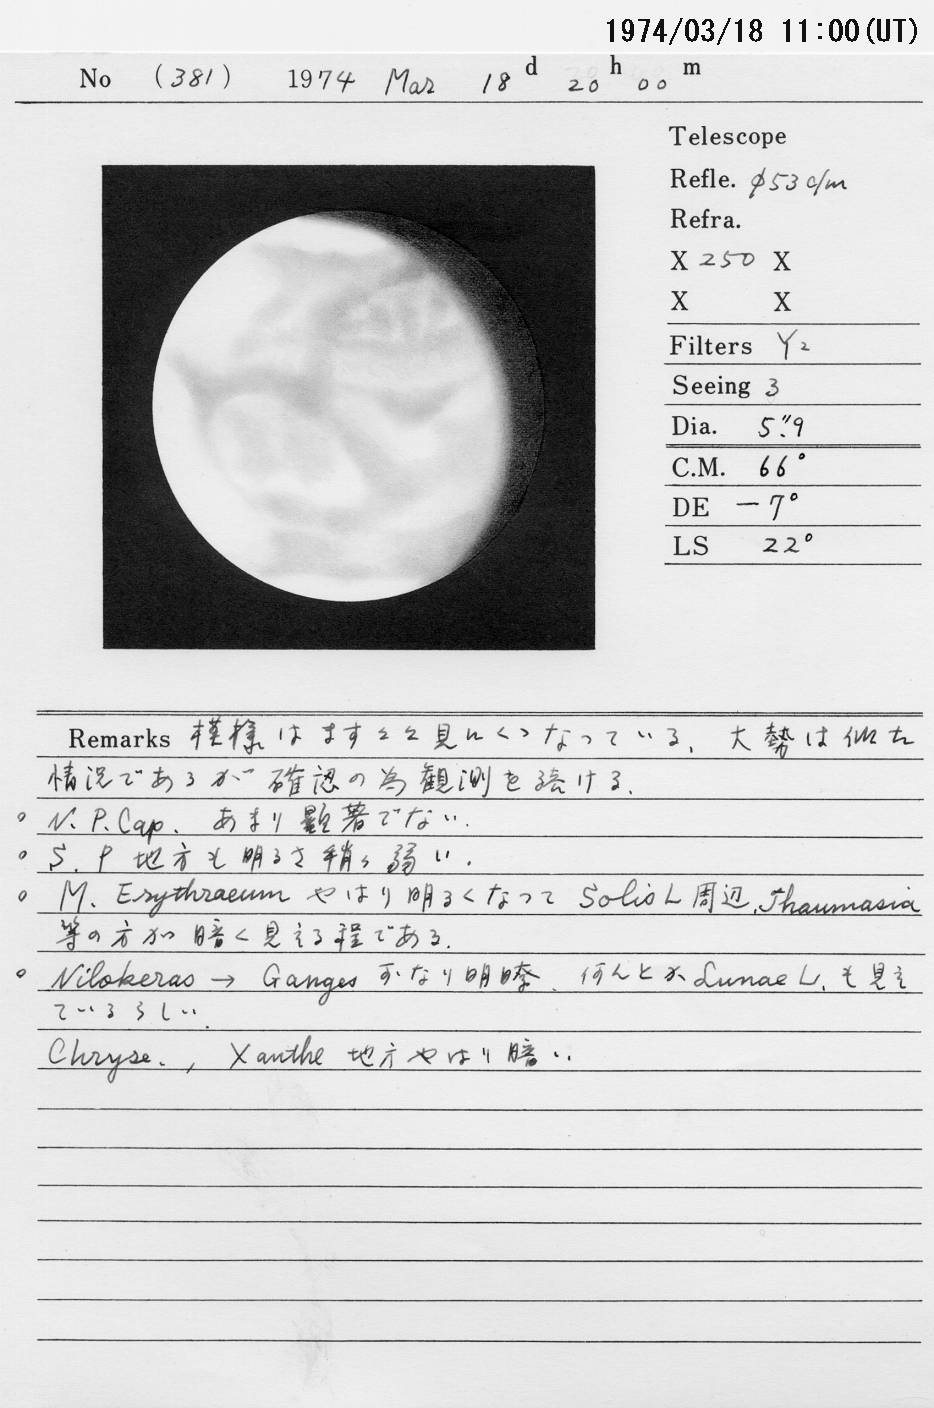 1974/03/18 11:00(UT)
No (381) 1974 Mar 18d 20h 00m
Telescope
Refle. φ53 c/m
Refra.
X 250 X
X X
Filters Y2
Seeing 3
Dia. 5".9
C.M. 66°
DE －7°
LS 22°
Remarks 模様はますます見にくくなっている、大勢は似た
情況であるが確認の為観測を続ける、
○ N.P.Cap. あまり顕著でない.
○ S.P地方も明るさ稍々弱い.
○ M. Erythraeum やはり明るくなって Solis L 周辺、Thaumasia
等の方が暗く見える程である.
○ Nilokeras → Ganges かなり明瞭、何んとか Lunae L. も見え
ているらしい.
Chryse., Xanthe 地方やはり暗い.